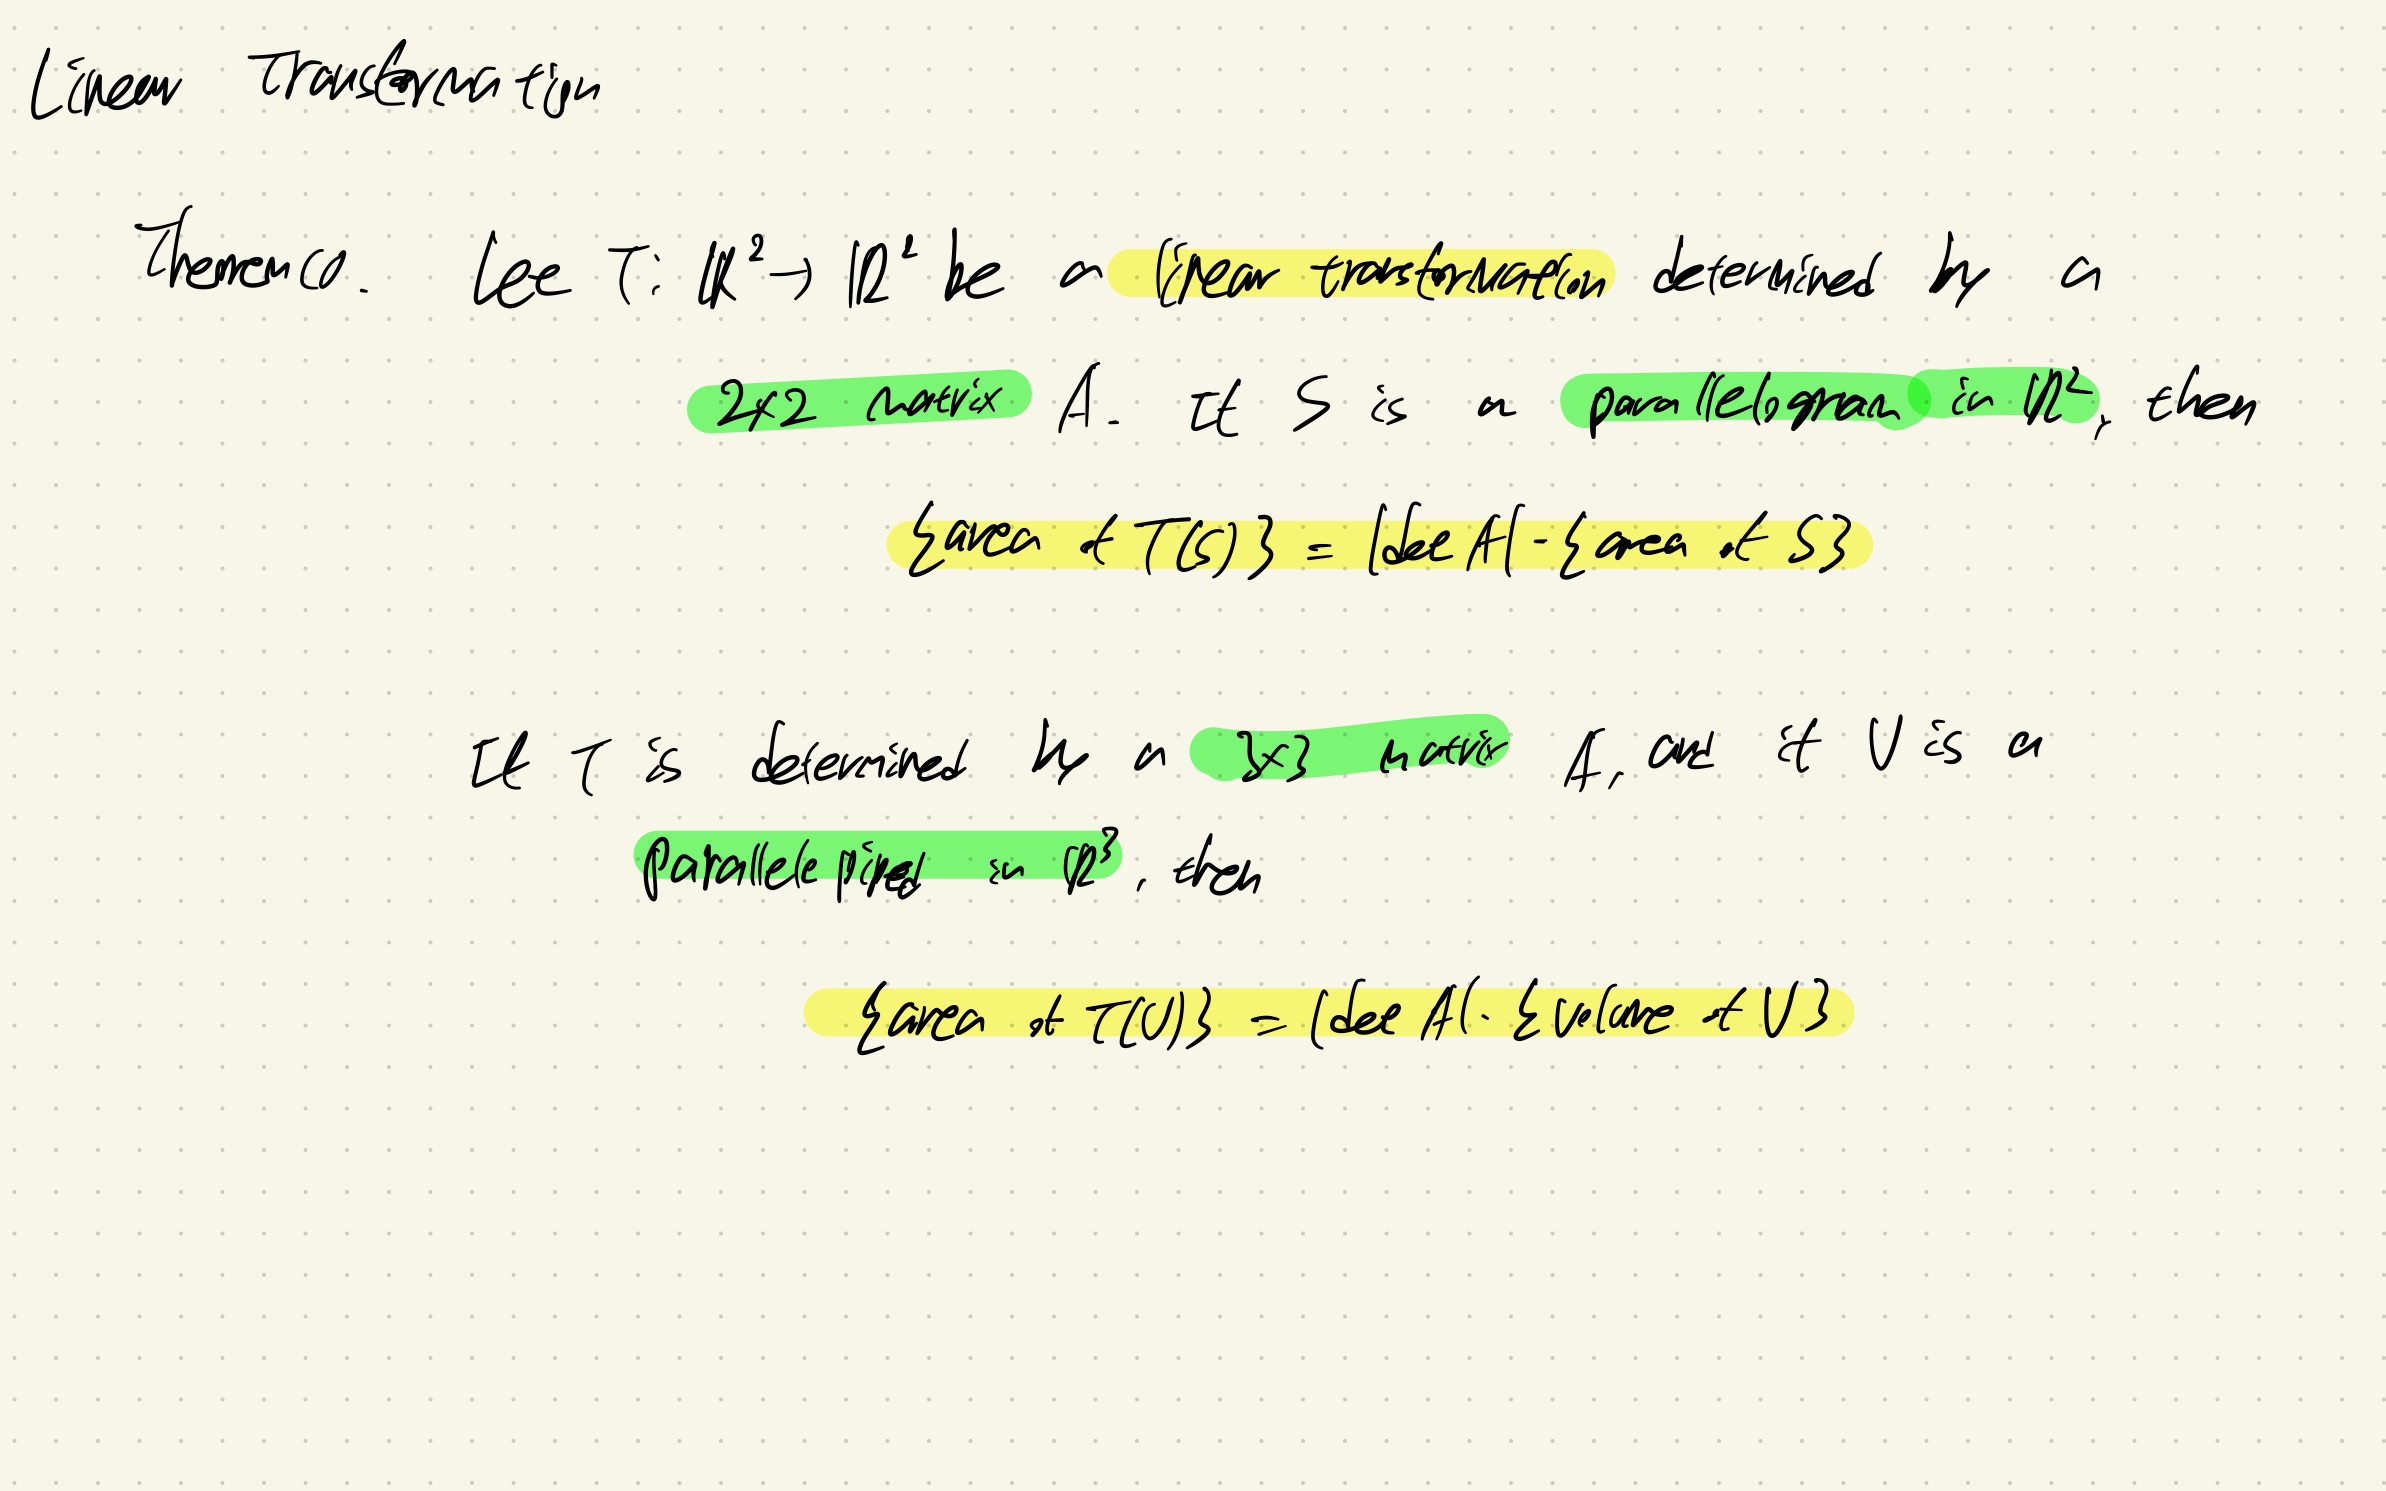 Linear Transformation
Theorem 10. Let T: ℝ² → ℝ² be a linear transformation determined by a
2x2 matrix A. If S is a parallelogram in ℝ², then
{area of T(S)} = |det A| · {area of S}
If T is determined by a 3x3 matrix A, and if V is a
Parallelepiped in ℝ³, then
{area of T(V)} = |det A| · {volume of V}